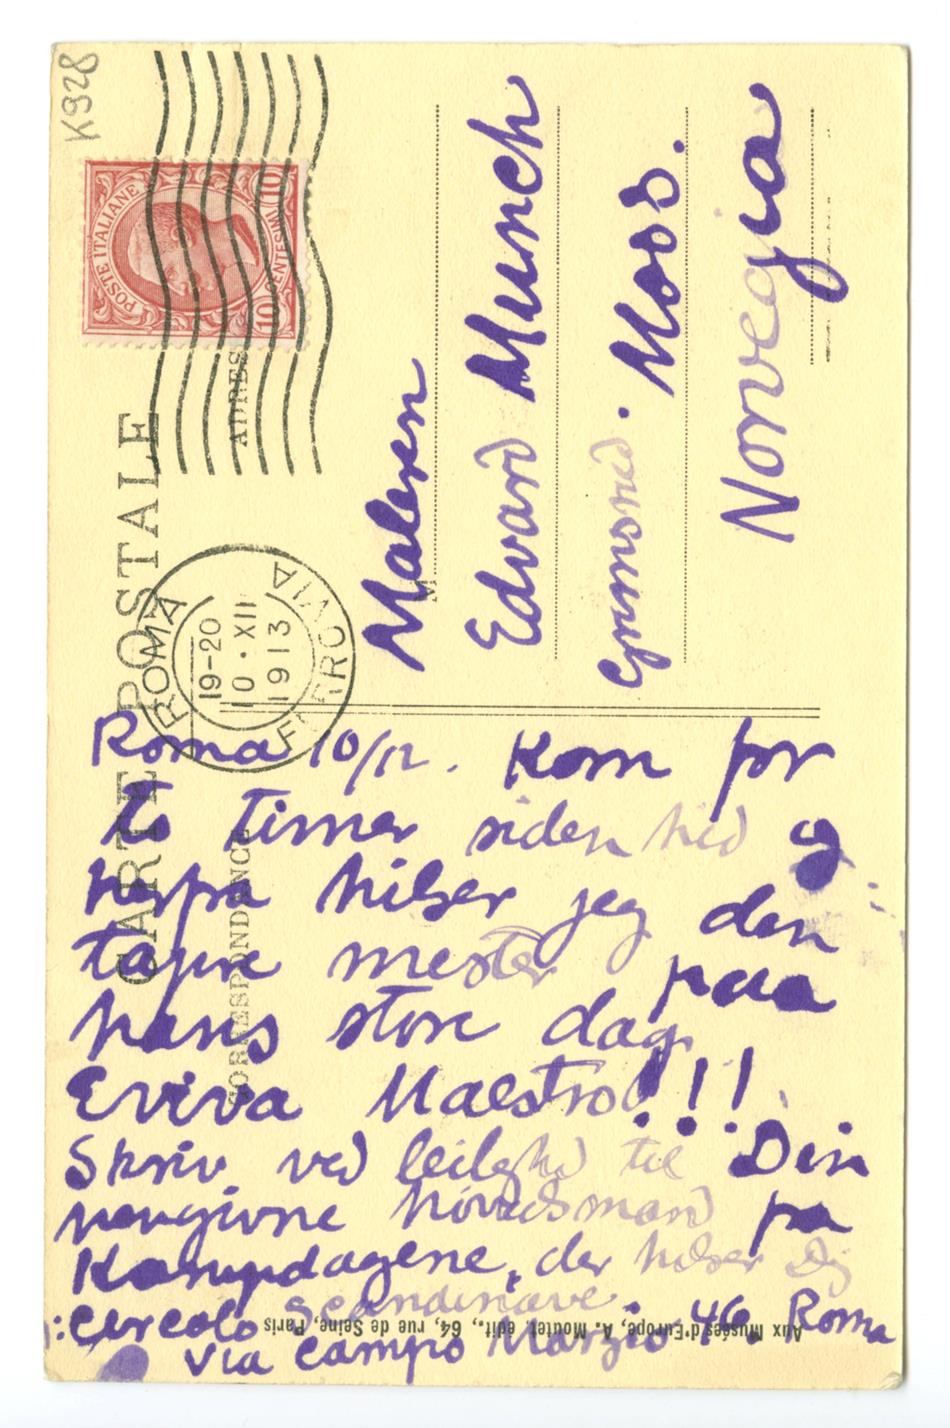 K928
POSTE ITALIANE
10 CENTESIMI 10
CARTE POSTALE
CORRESPONDANCE
ADRES
ROMA
19-20
10·XII
1913
FERROVIA
M
Maleren
Edvard Munch
Grimsrød. Moss.
Norvegia
Roma 10/12. Kom for
to timer siden hid og
herfra hilser jeg den
tapre mester paa
hans store dag.
Eviva Maestro!!!
Skriv ved leilighd til Din
hengivne hovedsmand pa
Kampdagene, der hilser Dig
: Circolo Scandinave.
Via Campo Marzio 46. Roma
Aux Musées d'Europe, A. Moutet, édit., 64, rue de Seine, Paris